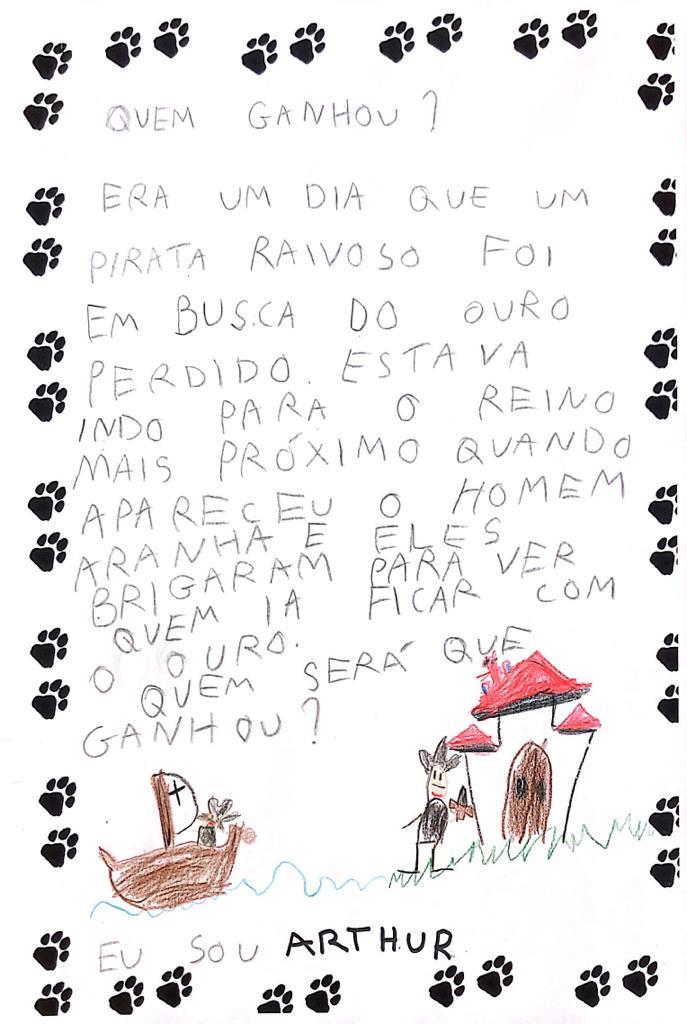 QUEM GANHOU?
ERA UM DIA QUE UM
PIRATA RAIVOSO FOI
EM BUSCA DO OURO
PERDIDO. ESTAVA
INDO PARA O REINO
MAIS PRÓXIMO QUANDO
APARECEU O HOMEM
ARANHA E ELES
BRIGARAM PARA VER
QUEM IA FICAR COM
O OURO.
QUEM SERÁ QUE
GANHOU?
EU SOU ARTHUR